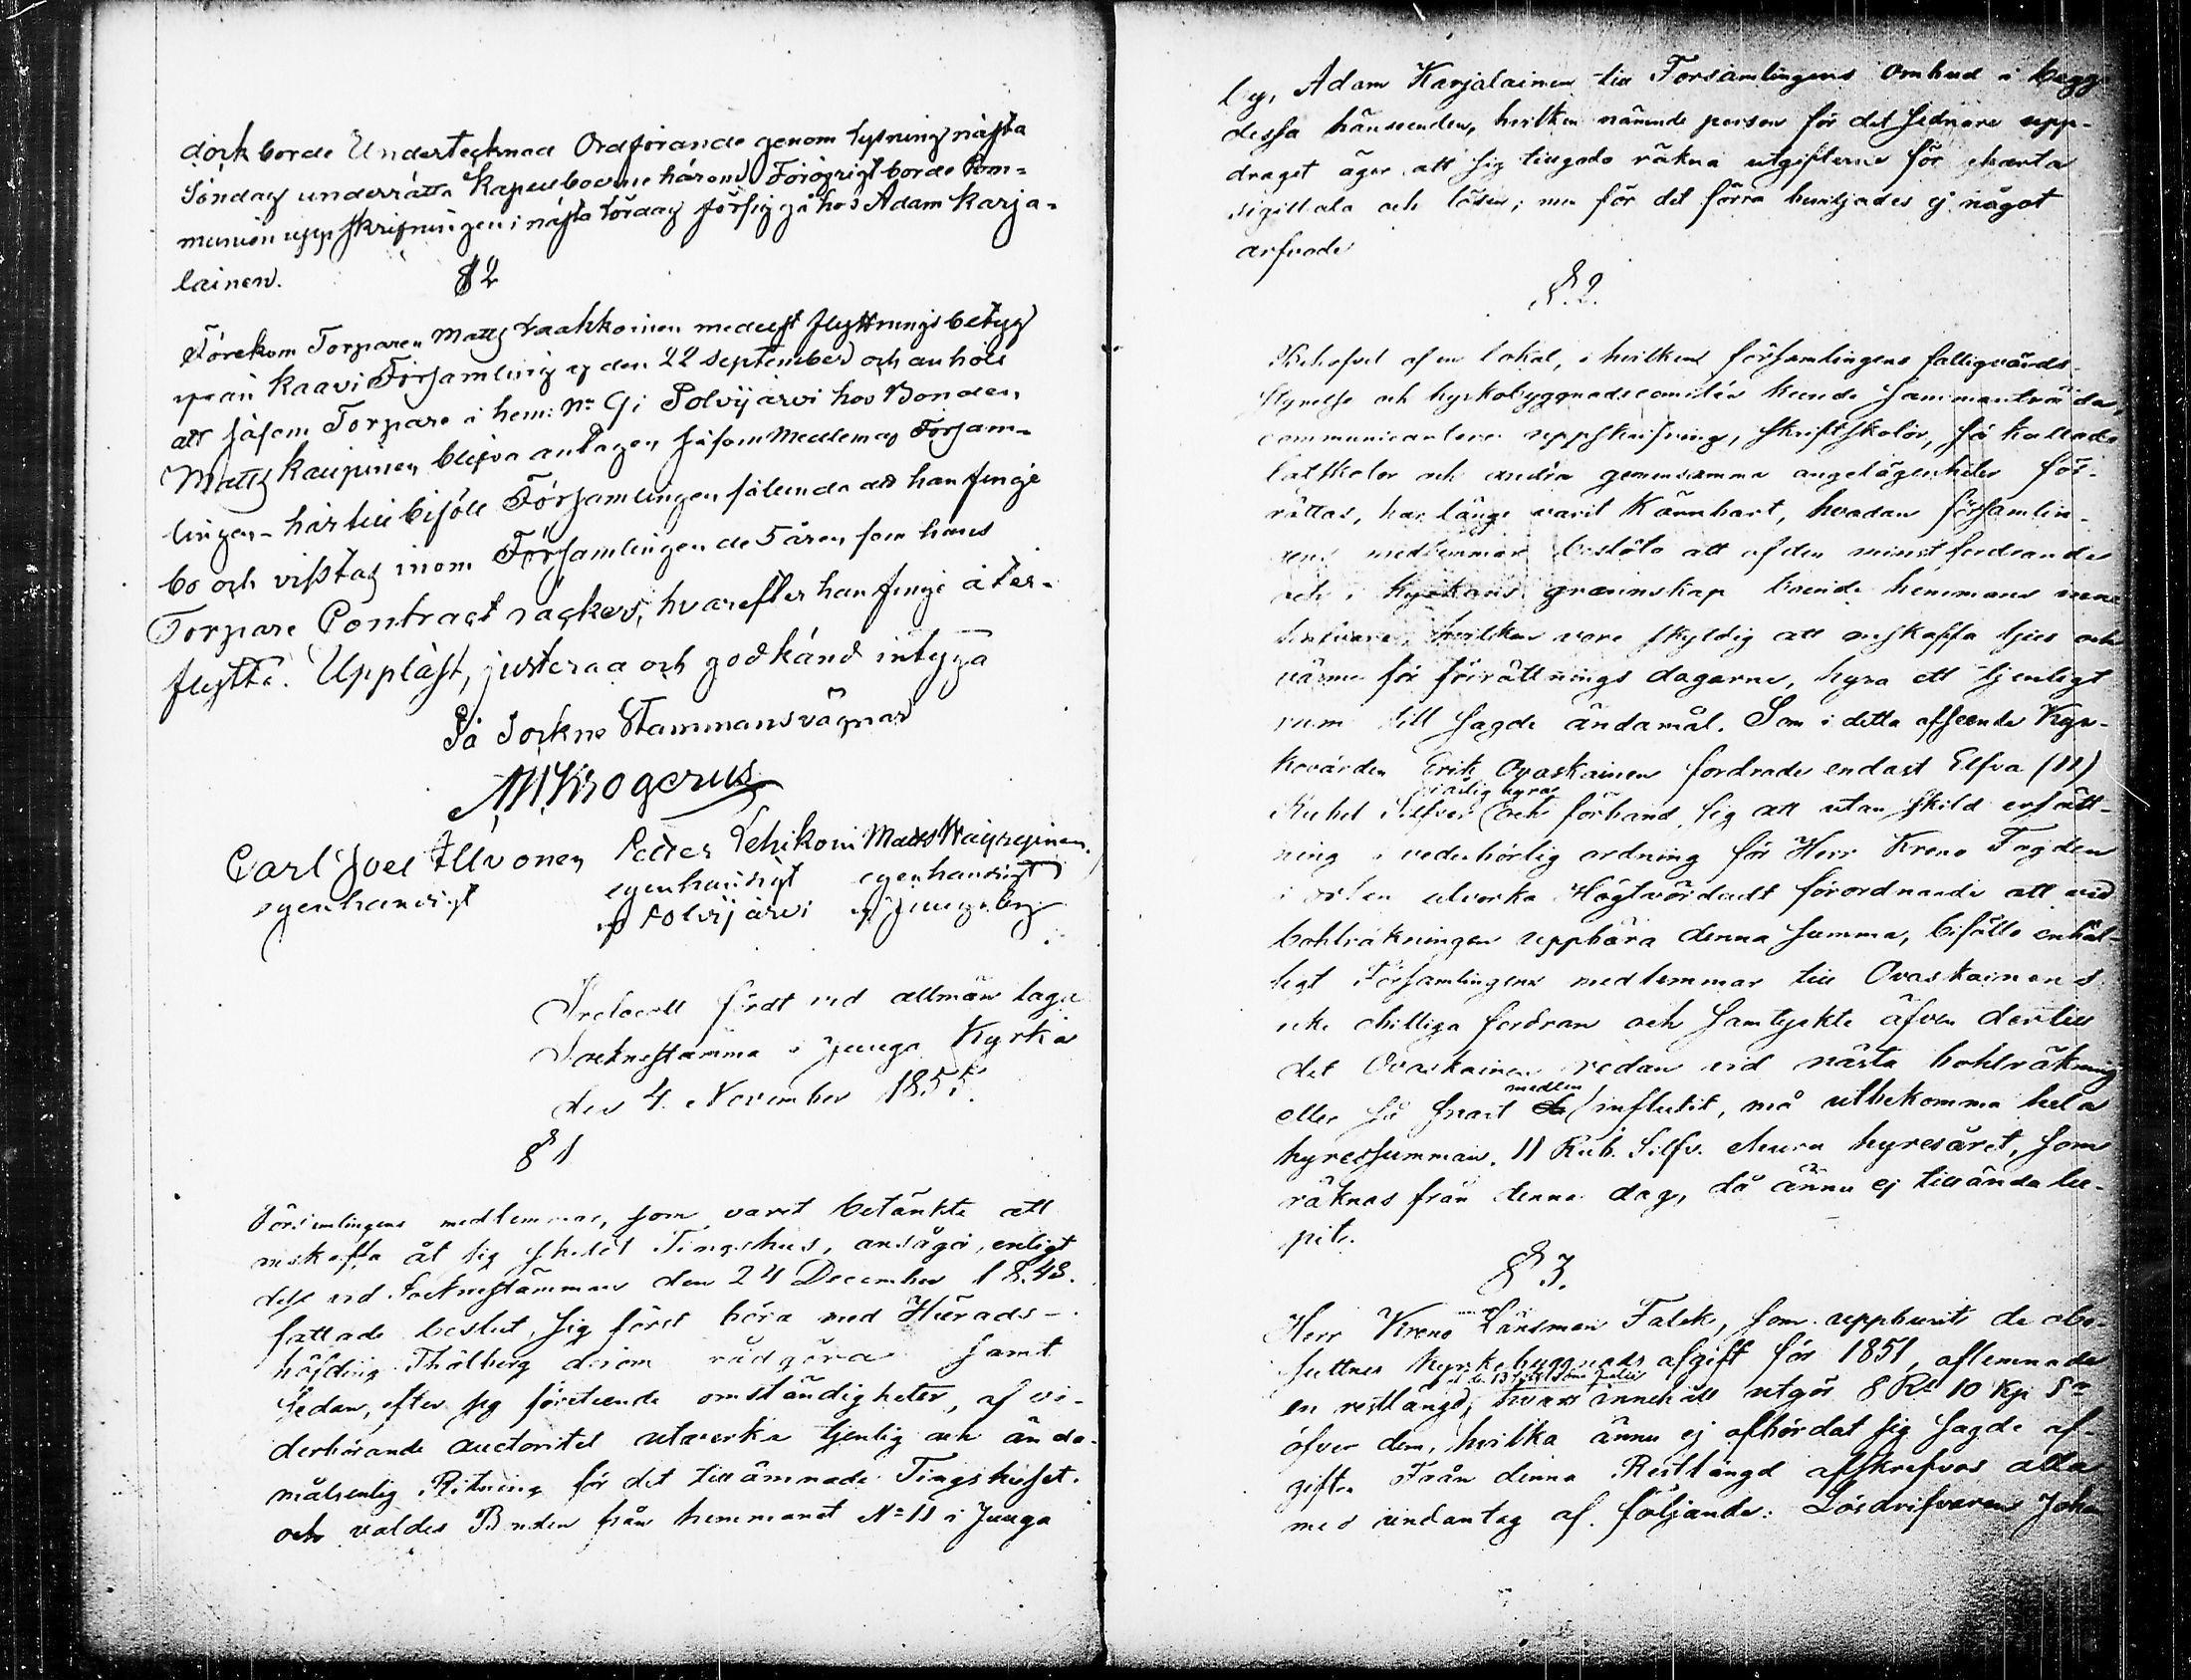 dock borde Undertecknad Ordförande genom lysning nästa
Söndag underrätta Kapellboerne härom. Förögrigt borde Com-
munion uppskrifningen i nästa Lördag försiggå hos Adam Karja-
lainen.
§ 2
Förekom Torparen Matts Laakkoinen medelst flyttningsbetyg
från Kaavi Församling af den 22 September och anhöll
att såsom Torpare i hem: No 9 i Polvijärvi hos Bonden
Matts Kaupinen blifva antagen såsom Medlem af Försam-
lingen - härtill biföll Församlingen sålunda att han finge
bo och vistas inom Församlingen de 5 åren som hans
Torpare Contract räcker, hvarefter han finge åter-
flytta. Uppläst, justerad och godkänd intyga
På Sockne Stammans vägnar
Krogerus
Carl Joel Ilvonen Petter Lehikoin Matts
egenhändigt egenhändigt egenhändigt
af Polvijärvi af Juuga by
Protocoll fördt vid allmän laga
Socknestämma i Juuga Kyrka
den 4. November 1855.
§ 1
Församlingens medlemmar, som varit betänkte att
anskaffa åt sig skildt Tingshus, ansågo, enligt
dess vid Socknestämman den 24 December 1848.
fattade beslut, sig först böra med Härads-
höfding Thölberg derom rådgöra samt
sedan, efter sig företeende omständigheter, af ve-
derhörande auctoritet utverka tjenlig och ända-
målsenlig Ritning för det tillämnade Tingshuset.
och valdes Bonden från hemmanet No 11 i Juuga
by, Adam Karjalainen till Församlingens Ombud i begge
dessa hänseenden, hvilken nämnde person för det sednare upp-
draget äger att sig tillgodo räkna utgifterne för charta
sigillata och lösen; men för det förra beviljades ej något
arfvode
§. 2.
Behofvet af en lokal, i hvilken församlingens fattigvårds-
styrelse och kyrkobyggnadscomitén kunde sammanträda,
communicanternes uppskrifning, skriftskolor, så kallade
lässkolor och andra gemensamma angelägenheter för-
rättas, har länge varit kännbart, hvadan församlin-
gens medlemmar beslöto att af den minst fordrande
och i kyrkans grannskap boende hemmans inne
hafvare, hvilken vore skyldig att anskaffa ljus och
värme för förrättnings dagarne, hyra ett tjenligt
rum till sagde ändamål. Som i detta afseende Kyr-
kovärden Erik Ovaskainen fordrade endast Elfva (11)
Rubel Silfver i årlig hyra och förband sig att utan skild ersätt-
ning i vederbörlig ordning för Herr Krono Fogden
i orten utverka Högtvördadt förordnande att vid
bohlräkningen uppbära denna summa, biföllo enhäl-
ligt Församlingens medlemmar till Ovaskainens
icke obilliga fordran och samtyckte äfven dertill
det Ovaskainen redan vid nästa bohlräkning
eller så snart medlen influtit, må utbekomma hela
hyressumman, 11 Rub. Silfv. ehuru hyresåret, som
räknas från denna dag, då ännu ej tilländalu-
pit.
§ 3.
Herr Krono Länsman Falck, som uppburit de obe-
suttnes kyrkobyggnads afgift för 1851, aflemnade
en restlängd, hvars innehåll utgör 8 Rb 10 Kp Sr
öfver dem, hvilka ännu ej afbördat sig sagde af-
gift. Från denna Restlängd afskrefvos alla
med undantag af följande: Lösdrifvaren Johan